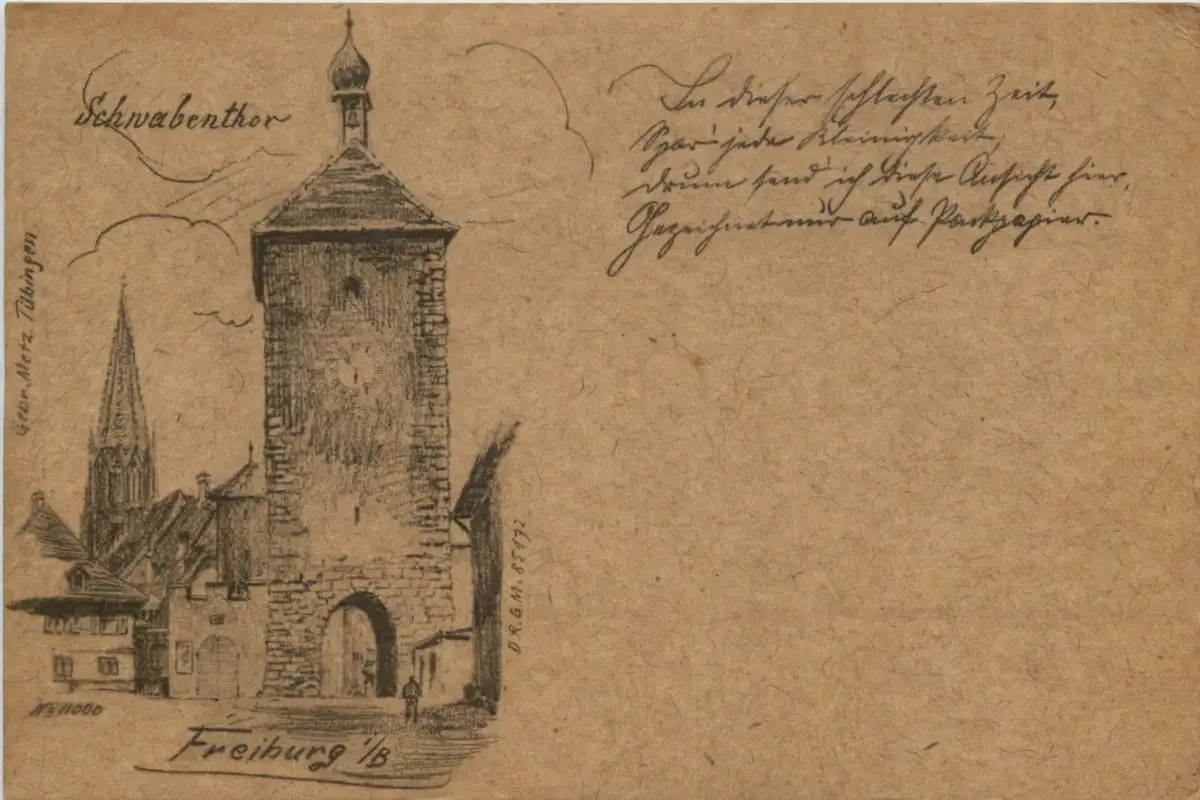 Schwabenthor
In dieser schlechten Zeit,
Spar' jede Kleinigkeit,
drum send' ich diese Ansicht hier,
Gezeichnet nur auf Packpapier.
Gebr. Metz. Tübingen
D.R.G.M. 85172
No 11000
Freiburg i/B